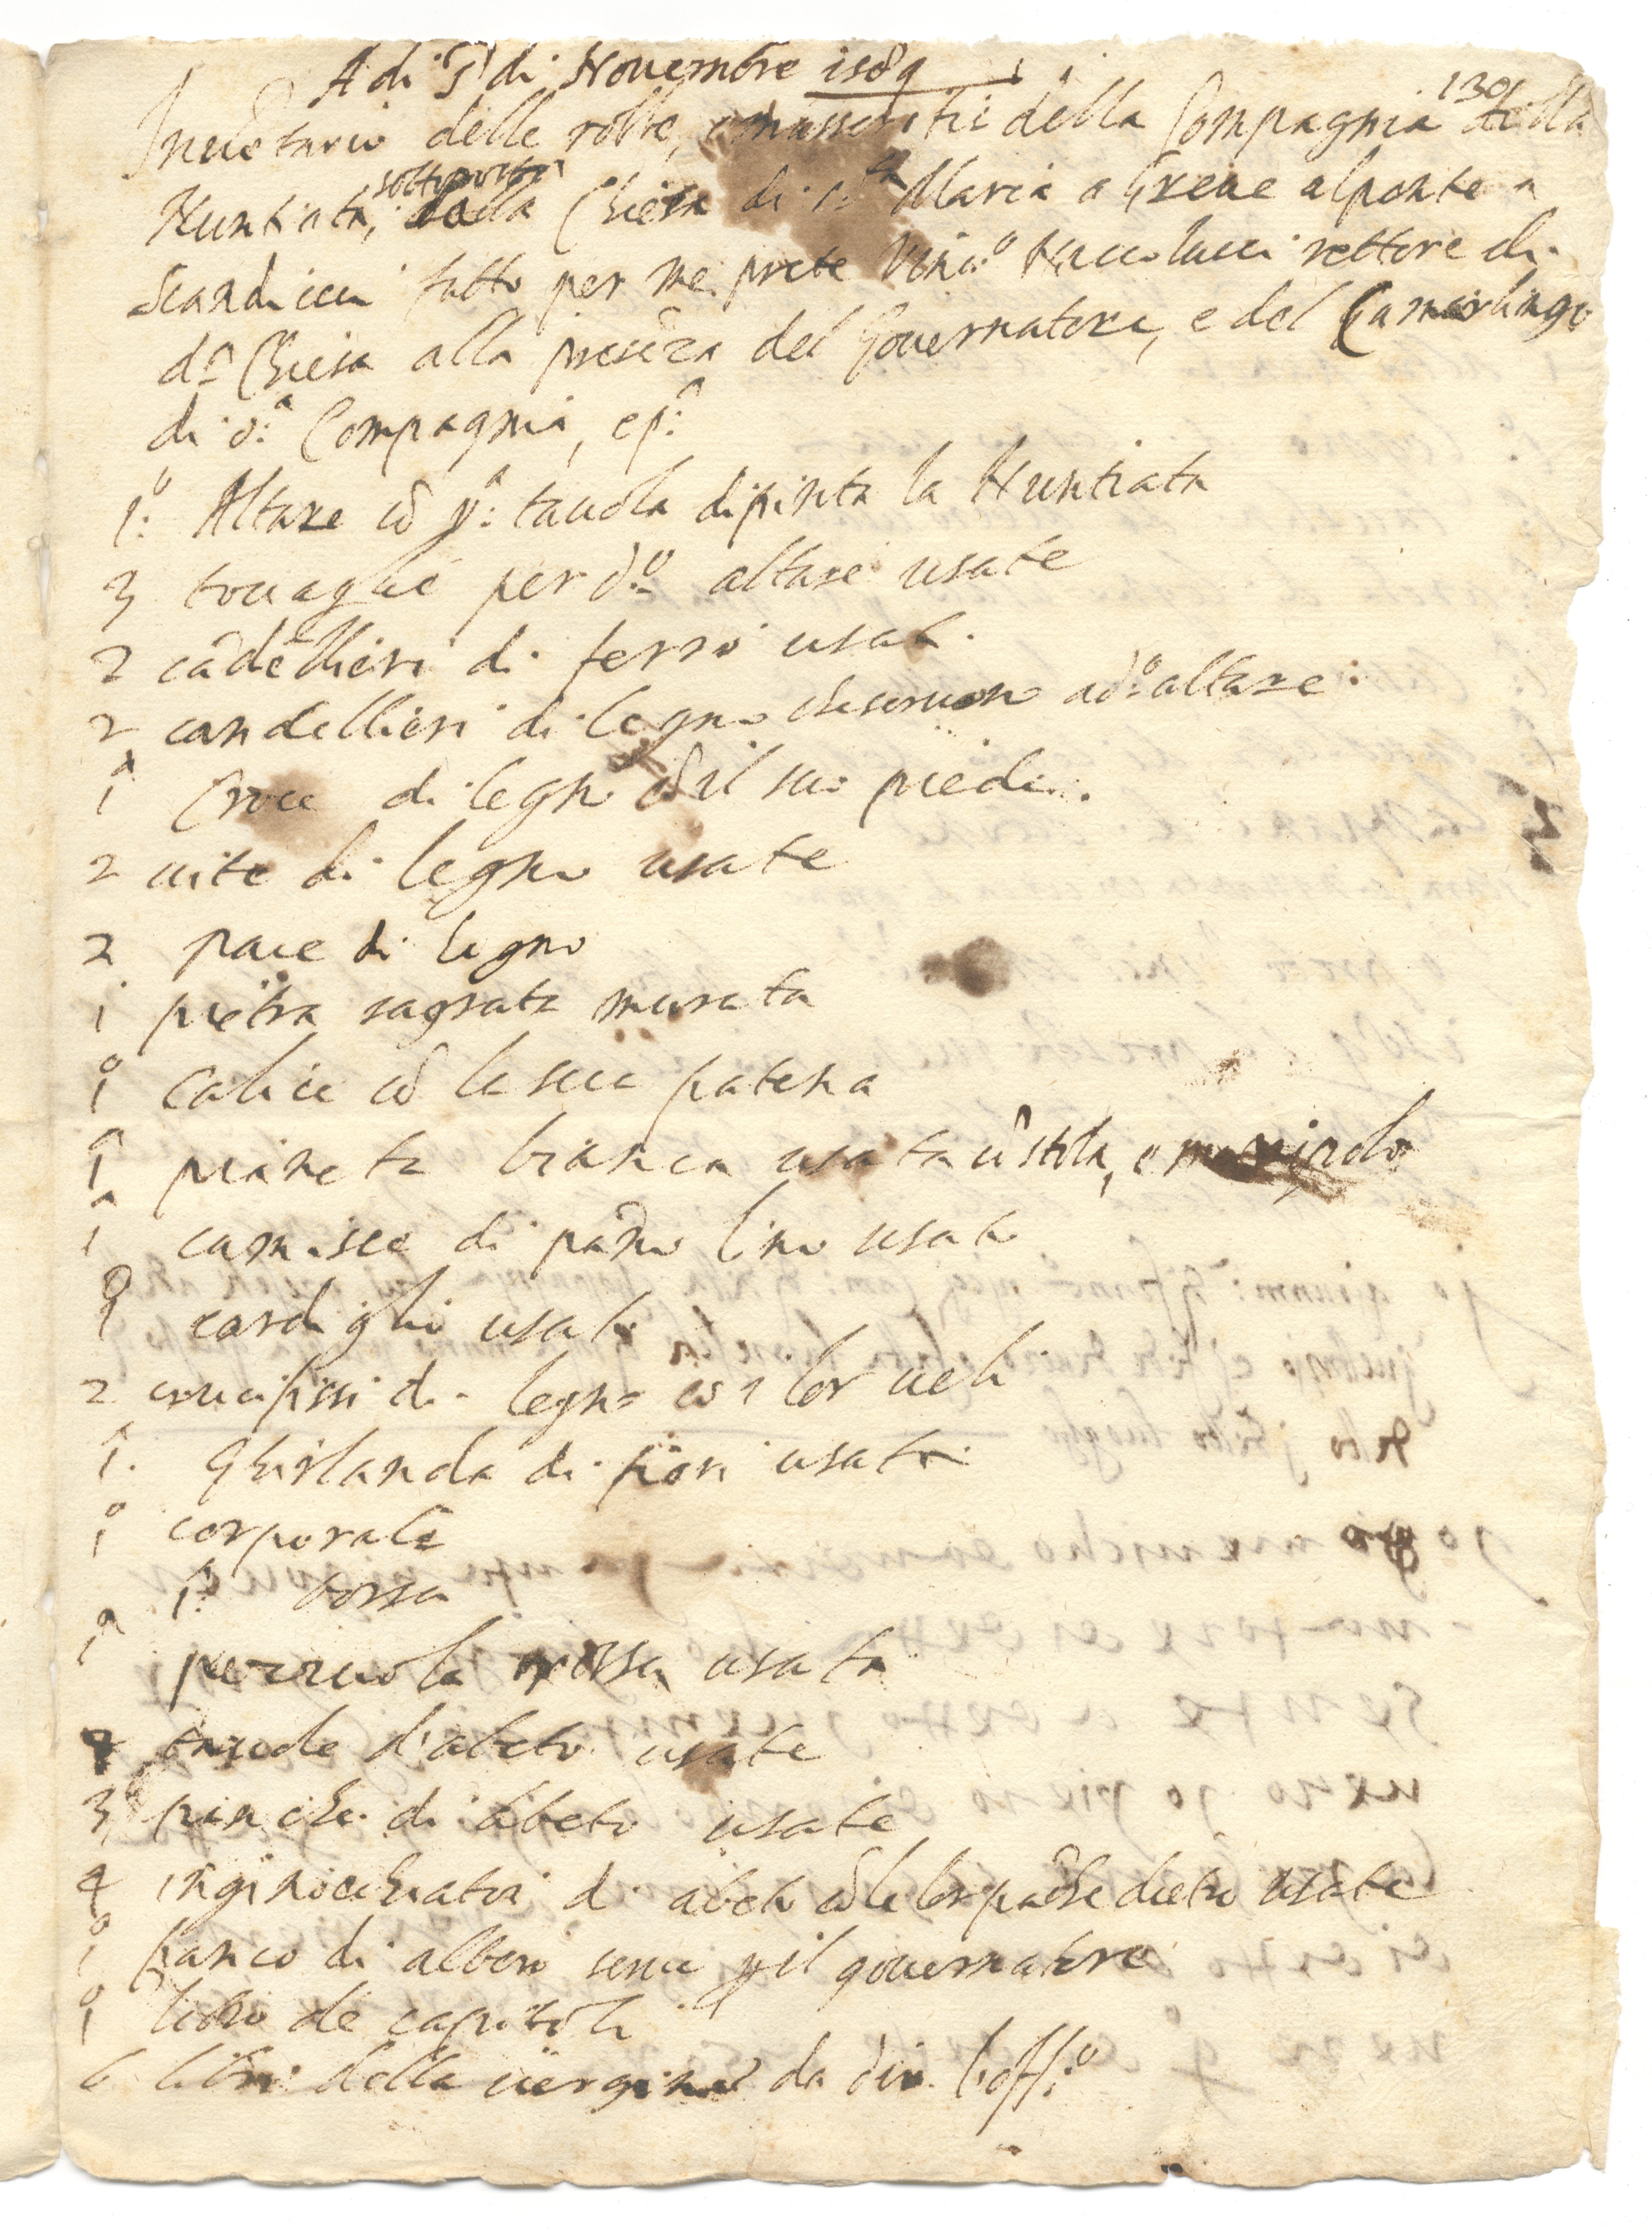 A di 5 di Novembre 1589
130
Inuētario delle robbe, e masseritie della Compagnia della
Nuntiata, sottoposta alla Chiesa di s.ta Maria a Greue al ponte a
Scandicci fatto per me prete Vinc.o Nacciolucci rettore di
d.a Chiesa alla presēza del Gouernatore, e del Camarlingo
di d.a Compagnia, e p.a
1.o Altare cō p.a tauola dipinta la Nuntiata
3 touaglie per d.o altare usate
2 cādēllieri di ferro usati
2 candellieri di legno che seruono a d.o altare
1a Croce di legno cō il suo piede.
2 uite di legno usate
2 pace di legno
1 pietra sagrata murata
1o Calice cō la sua patena
1a pianeta bianca usata cō stola, e manipolo
1 camisce di pāno lino usato
1o cordiglio usato
2 crucifissi di legno cō i lor ueli
1a. Ghirlanda di fiori usata
1o corporale
1a borsa
1a pezzuola rossa usata
tauole d'abeto usate
3 panche di abeto usate
4 inginocchiatoi di abeto cō le lor pāche dietro usate
1o banco di albero serue p il gouernatore
1o libro de capitoli
6 libri della uergine da dir l'off.o